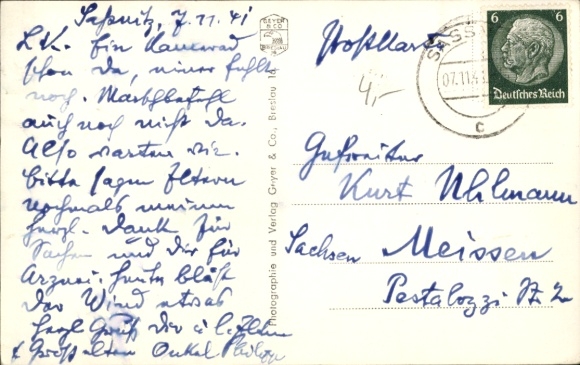 Saßnitz, 7.11.41
L.K. Ein Kamerad
schon da, einer fehlt
noch. Marschbefehl
auch noch nicht da.
Also warten wir.
Bitte sagen Eltern
nochmals meinen
herzl. Dank für
Sachen und Dir für
Arznei, heute bläst
der Wind etwas
Herzl Gruß Dir u. l. Eltern
Großeltern Onkel
GEYER & CO
Photographie und Verlag Geyer & Co., Breslau 16
Postkarte
4,-
SASSNITZ
07.11.41
c
6 6
Deutsches Reich
Gefreiter
Kurt Uhlmann
Sachsen Meissen
Pestalozzi